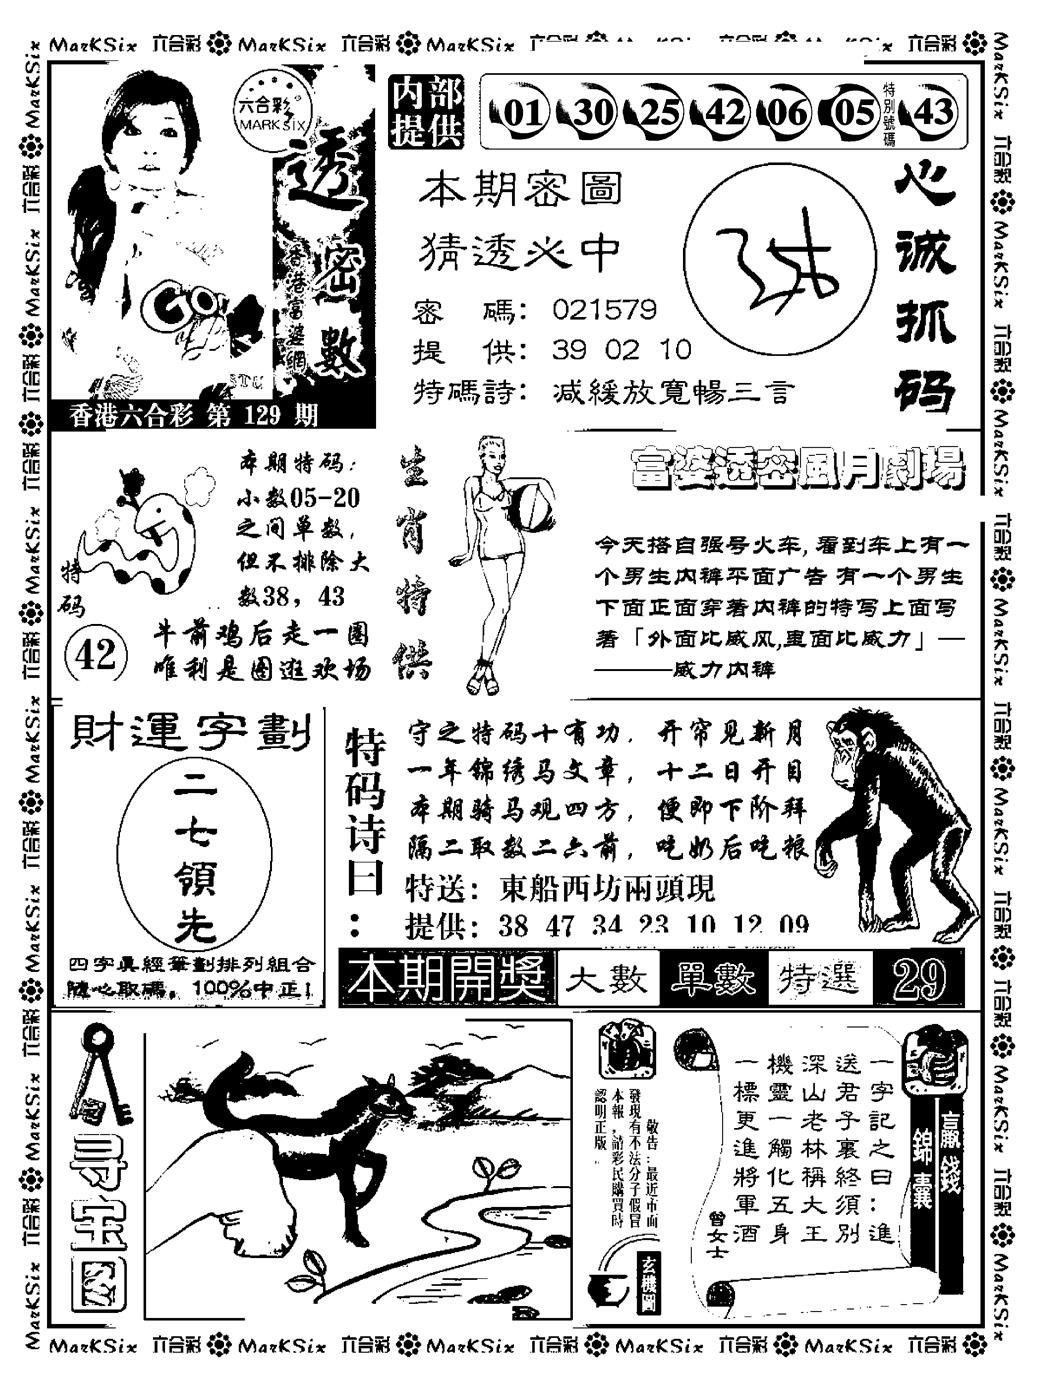 MarKSix 六合彩 MarKSix 六合彩 MarKSix
六合彩
MARKSIX
透密數
香港富婆網
香港六合彩 第 129 期
内部
提供
01 30 25 42 06 05 特別號碼 43
本期密圖
猜透必中
密 碼: 021579
提 供: 39 02 10
特碼詩: 减緩放寬暢三言
心诚抓码
特码
42
本期特码:
小数05-20
之间单数,
但不排除大
数38, 43
牛前鸡后走一圈
唯利是图逛欢场
生肖特供
富婆透密風月劇場
今天搭自强号火车, 看到车上有一
个男生内裤平面广告 有一个男生
下面正面穿著内裤的特写上面写
著「外面比威风,里面比威力」—
————威力内裤
財運字劃
二七領先
四字眞經筆劃排列組合
隨心取碼, 100%中正!
特码诗曰:
守之特码十有功, 开帘见新月
一年锦绣马文章, 十二日开目
本期骑马观四方, 便即下阶拜
隔二取数二六前, 吃奶后吃粮
特送: 東船西坊兩頭現
提供: 38 47 34 23 10 12 09
本期開獎 大數 單數 特選 29
寻宝图
敬告:最近市面
發現有不法分子假冒
本報,請彩民購買時
認明正版..
玄機圖
贏錢
錦囊
一字記之曰:進
送君子裏終須別
深山老林稱大王
機靈一觸化五身
一標更進將軍酒
曾女士
MarKSix 六合彩 MarKSix 六合彩 MarKSix 六合彩 MarKSix 六合彩 MarKSix